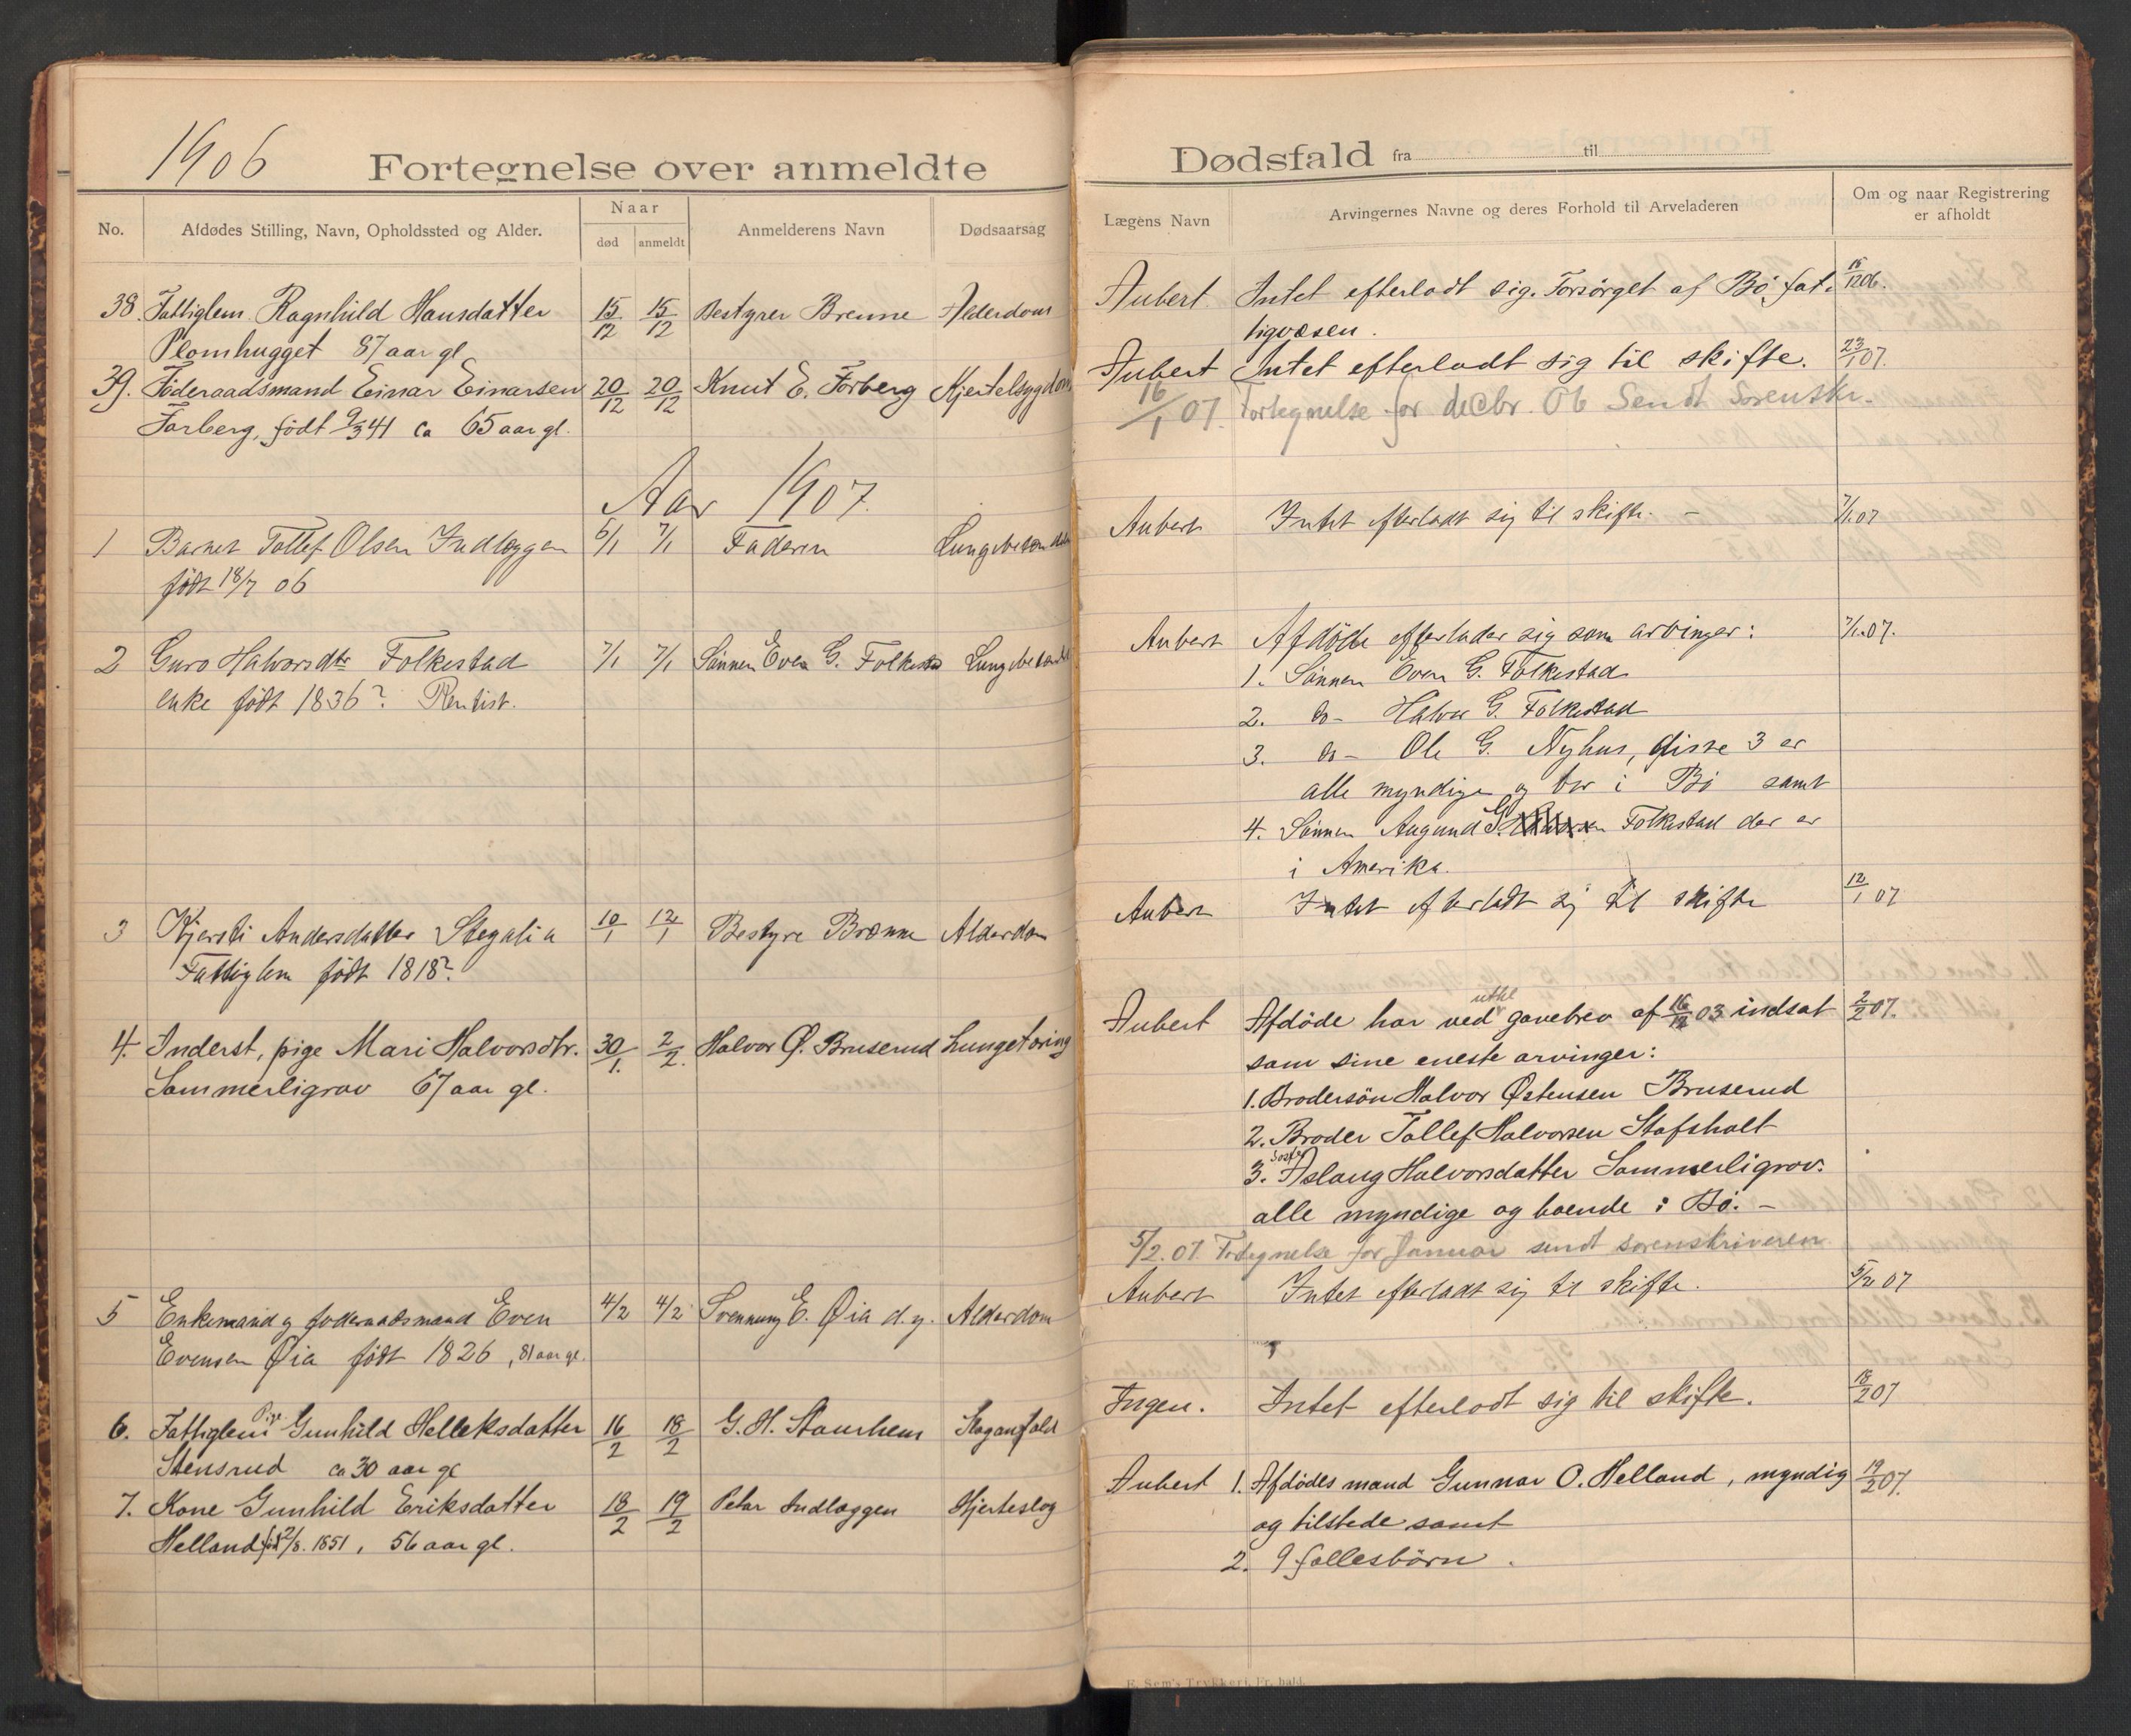 1906
Fortegnelse over anmeldte
No.
Afdødes Stilling, Navn, Opholdssted og Alder.
Naar
død
anmeldt
Anmelderens Navn
Dødsaarsag
38. Fattiglem Ragnhild Hansdatter 15/12 15/12 Bestyrer Brenne Alderdom
Plomhugget 87 aar gl
39. Föderaadsmand Einar Einarsen 20/12 20/12 Knut E. Forberg Kjertelsygdom
Forberg, födt 9/3 41 ca 65 aar gl.
Aar 1907.
1 Barnet Tollef Olsen Indlæggen 5/1 7/1 Faderen Lungebetændelse
födt 18/7 06
2 Guro Halvorsdtr Folkestad 7/1 7/1 Sönnen Even G. Folkestad Lungebetændelse
enke födt 1836? Rentist.
3 Kjersti Andersdatter Stegalia 10/1 12/1 Bestyre Brænne Alderdom
Fattiglem födt 1818?
4. Inderst, pige Mari Halvorsdtr. 30/1. 2/2. Halvor Ø. Bruserud Lungetæring
Sommerligrav 67 aar gl.
5 Enkemand g foderaadsmand Even 4/2 4/2 Svennung E. Øia d.y. Alderdom
Evensen Øia födt 1826, 81 aar gl.
6. Fattiglem Pige Gunhild Helleksdatter 16/2 18/2 G. H. Staurheim
Stensrud ca 30 aar gl
7. Kone Gunhild Eriksdatter 18/2 19/2 Peter Indlæggen Hjerteslag
Helland født 2/8. 1851, 56 aar gl.
Dødsfald fra til
Lægens Navn
Arvingernes Navne og deres Forhold til Arveladeren
Om og naar Registrering
er afholdt
Aubert Intet efterladt sig. Forsörget af Bö fat- 15/12 06.
tigvæsen.
Aubert Intet efterladt sig til skifte. 23/1 07.
16/1 07. Fortegnelse for decbr. 06 Sendt Sorenskr.
Aubert Intet efterladt sig til skifte. - 7/1 07
Aubert Afdöde efterlader sig som arvinger: 7/1 07.
1. Sönnen Even G. Folkestad
2. do - Halvor G. Folkestad
3. do - Ole G. Nyhus, disse 3 er
alle myndige og bor i Bö samt
4. Sönnen Aagund G. Folkestad der er
i Amerika.
Aubert Intet efterladt sig til skifte 12/1 07
Aubert Afdöde har ved gavebrev af 16/12 03 indsat 2/2 07.
som sine eneste arvinger:
1. Brodersön Halvor Østensen Bruserud
2. Broder Tollef Halvorsen Stafsholt
3. Söster Aslaug Halvorsdatter Sommerligrav.
alle myndige og boende i Bö. -
5/2. 07. Fortegnelse for Januar sendt sorenskriveren
Aubert Intet efterladt sig til skifte. 5/2 07
Ingen. Intet efterladt sig til skifte. 18/2 07
Aubert 1. Afdödes mand Gunnar O. Helland, myndig 19/2 07.
og tilstede samt
2. 9 fællesbörn.
E. Sem's Trykkeri, Fr. hald.